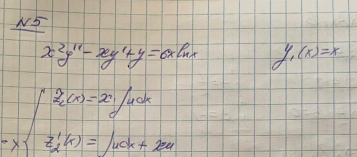 №5
x²y'' - xy' + y = 6x ln x     y₁(x) = x
z₂(x) = x ∫u dx
=> { z₂'(x) = ∫u dx + xu